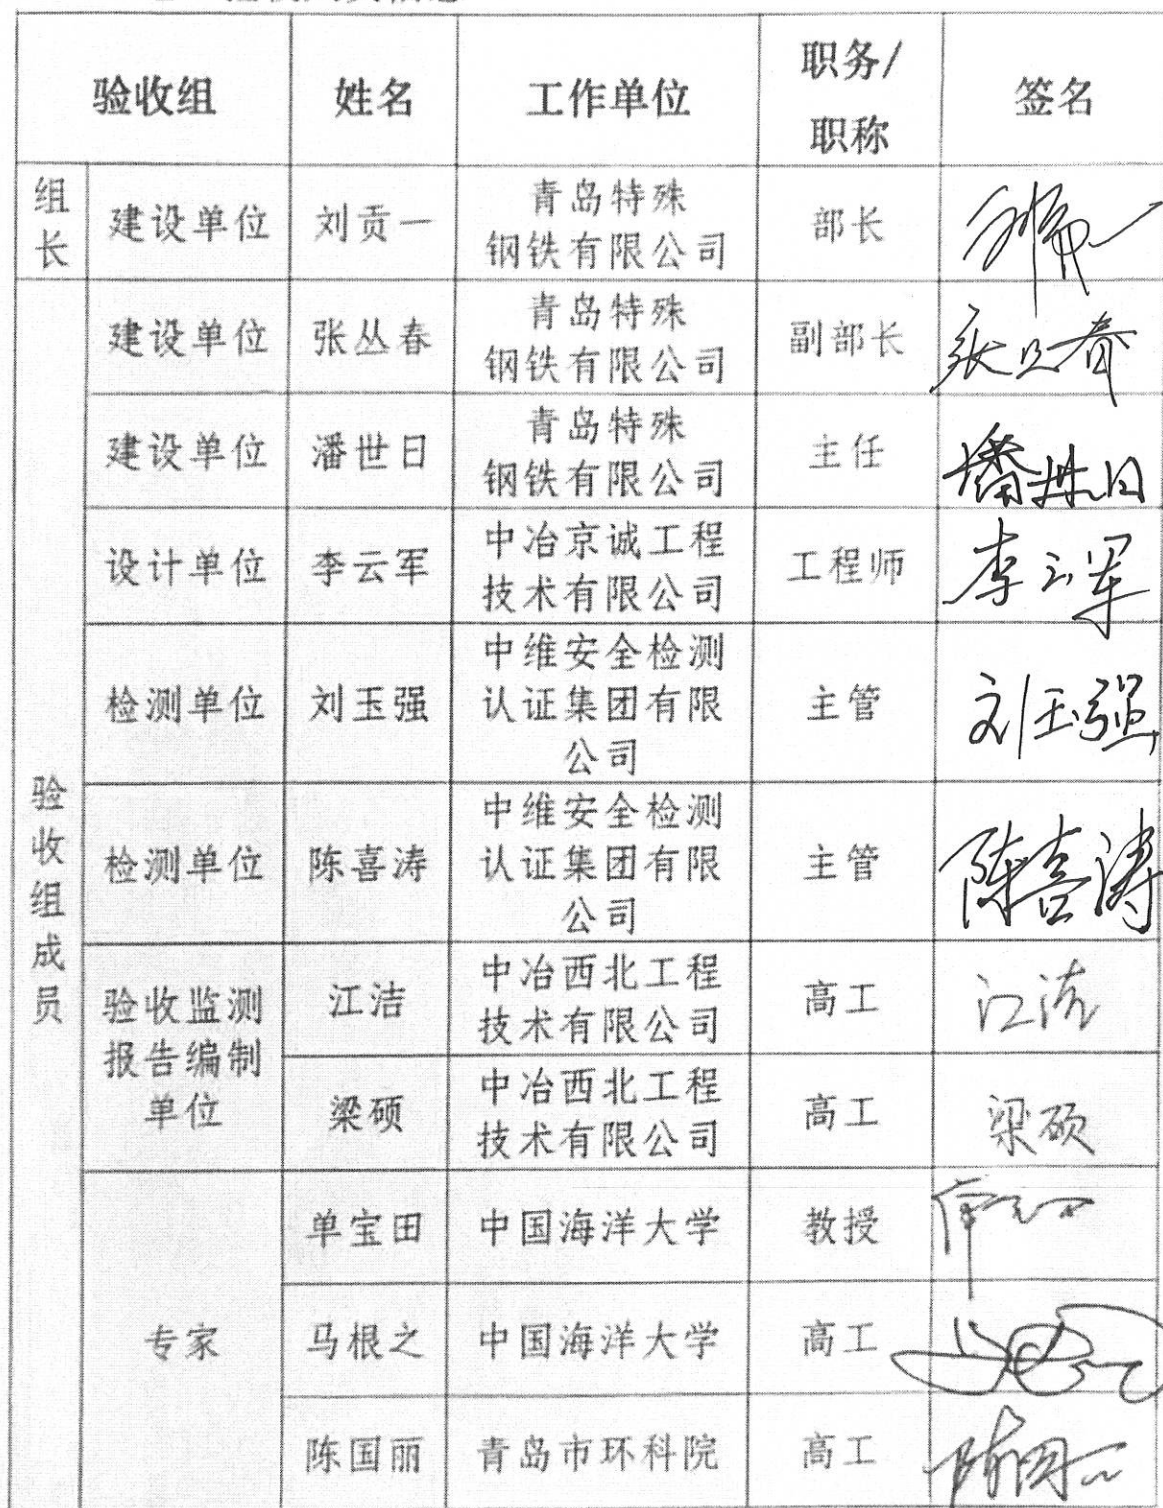 验收组 姓名 工作单位 职务/
职称 签名
组长 建设单位 刘贡一 青岛特殊
钢铁有限公司 部长
验收组成员
建设单位 张丛春 青岛特殊
钢铁有限公司 副部长 张丛春
建设单位 潘世日 青岛特殊
钢铁有限公司 主任 潘世日
设计单位 李云军 中冶京诚工程
技术有限公司 工程师 李云军
检测单位 刘玉强 中维安全检测
认证集团有限
公司 主管 刘玉强
检测单位 陈喜涛 中维安全检测
认证集团有限
公司 主管 陈喜涛
验收监测
报告编制
单位
江洁 中冶西北工程
技术有限公司 高工 江洁
梁硕 中冶西北工程
技术有限公司 高工 梁硕
专家
单宝田 中国海洋大学 教授
马根之 中国海洋大学 高工
陈国丽 青岛市环科院 高工